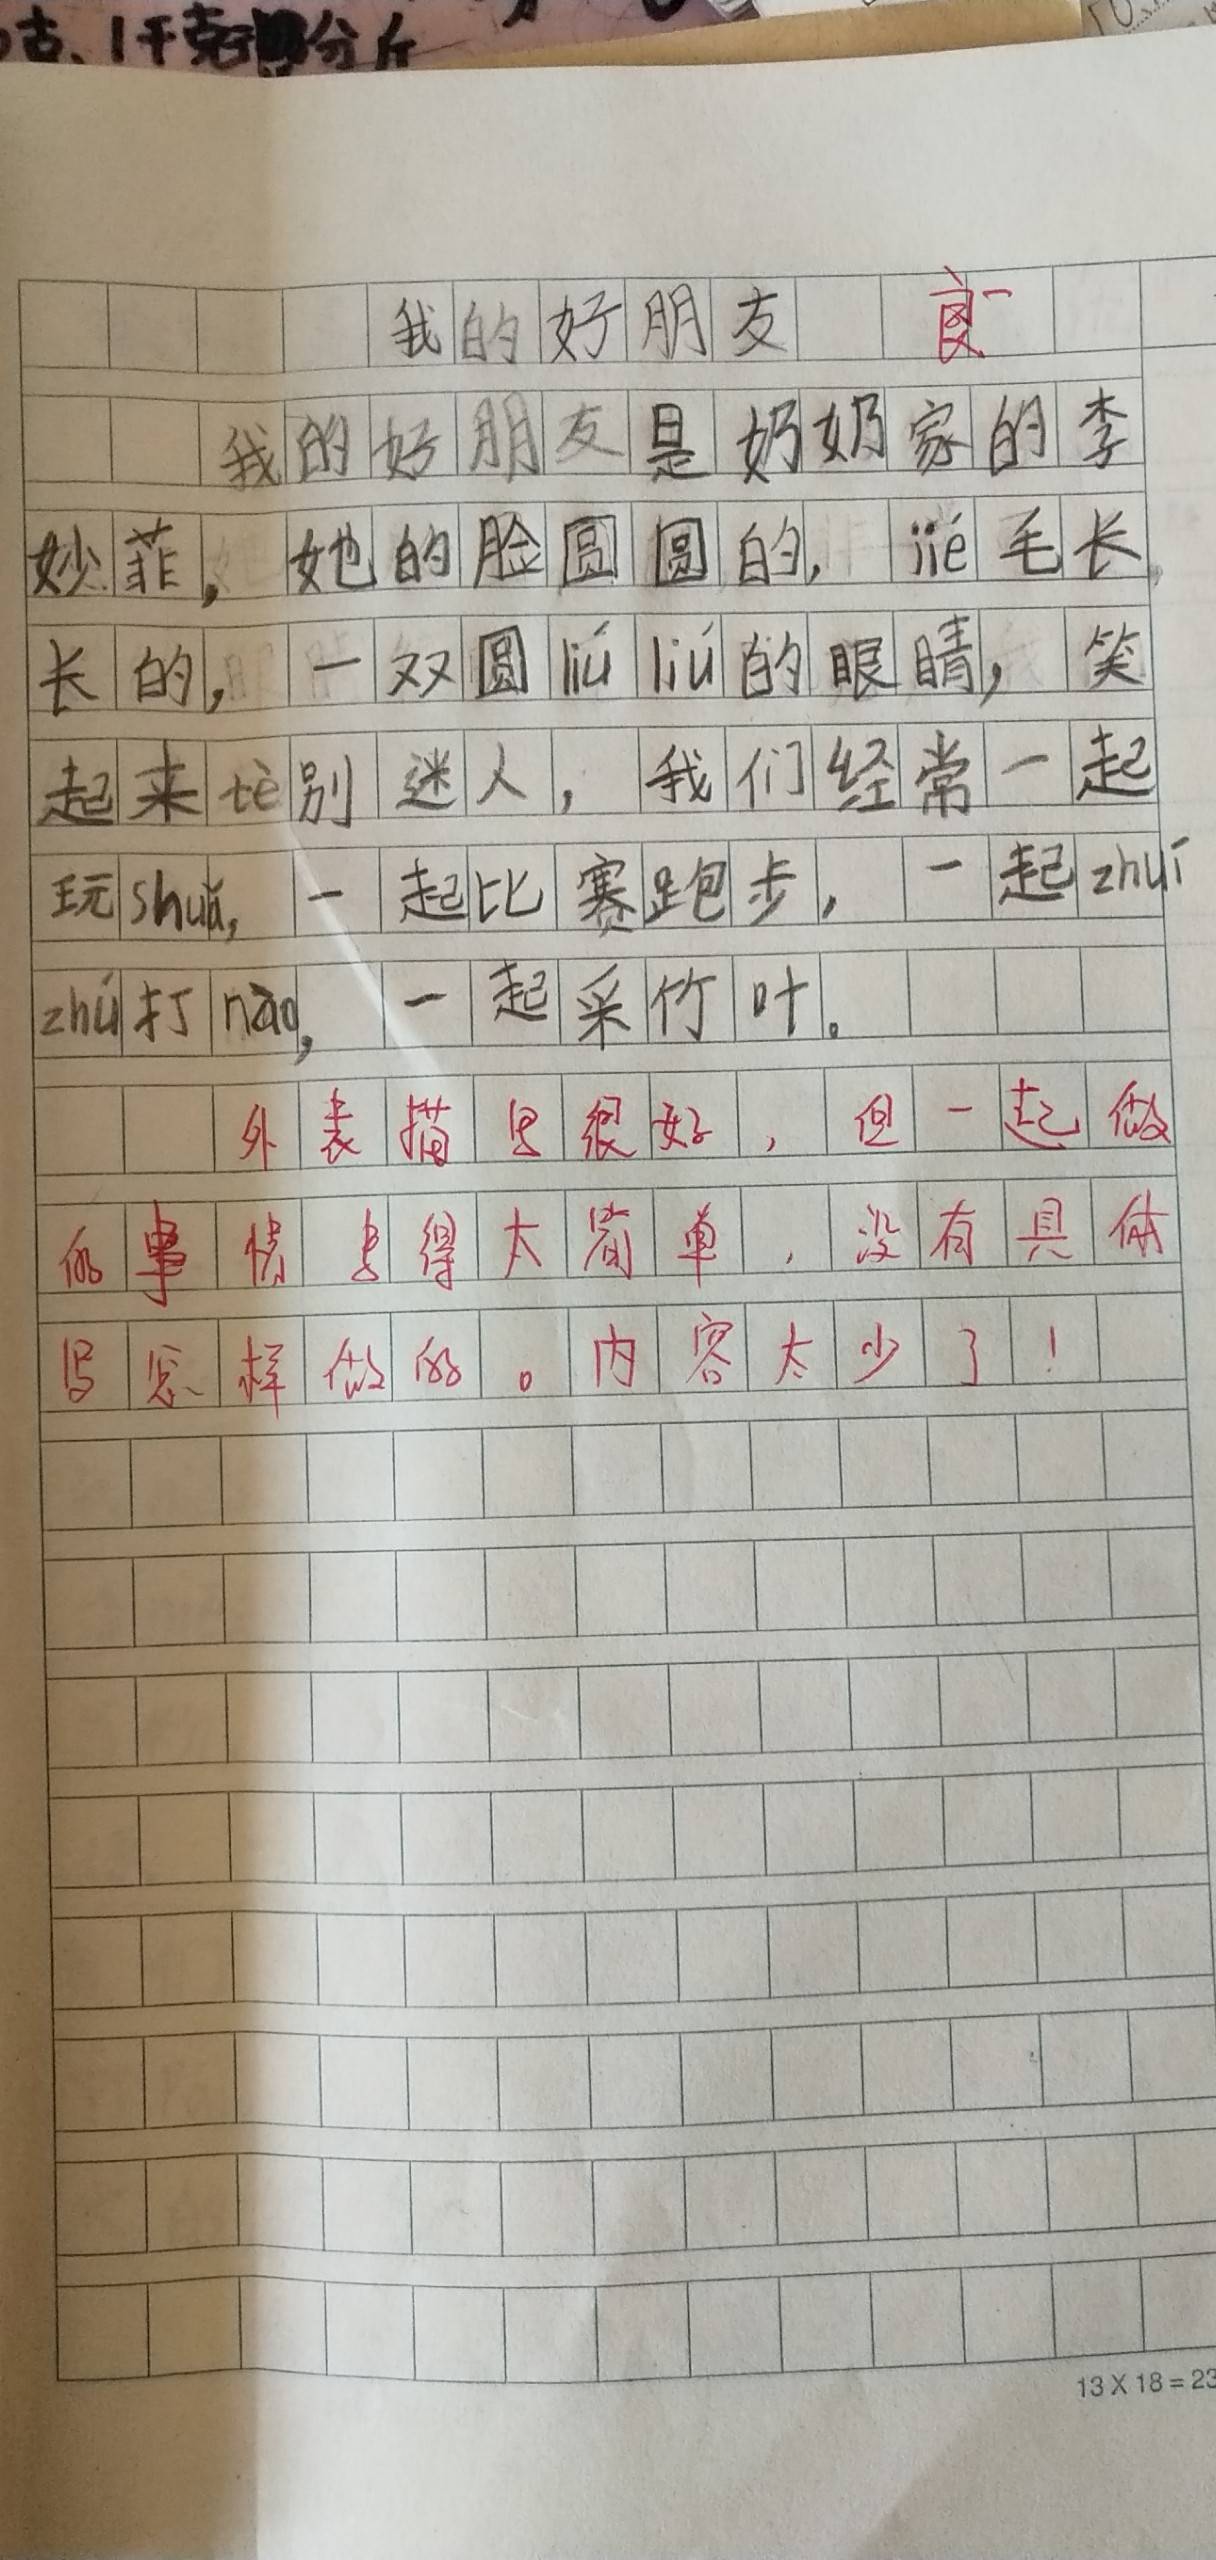 1千克 分斤
我的好朋友 良一
我的好朋友是奶奶家的李
妙菲，她的脸圆圆的，jié毛长
长的，一双圆liú liú的眼睛，笑
起来tè别迷人，我们经常一起
玩shuǎ，一起比赛跑步，一起zhuī
zhú打nào，一起采竹叶。
外表描写很好，但一起做
的事情写得太简单，没有具体
写怎样做的。内容太少了！
13 X 18 = 23